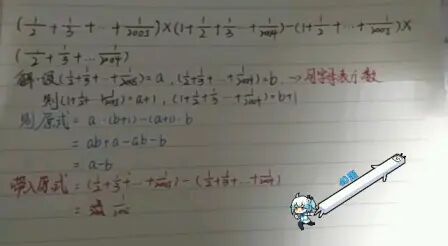 (1/2 + 1/3 + ··· + 1/2003) × (1 + 1/2 + 1/3 + ··· + 1/2004) − (1 + 1/2 + ··· + 1/2003) ×
(1/2 + 1/3 + ··· 1/2004)
解：设(1/2 + 1/3 + ··· + 1/2003) = a，(1/2 + 1/3 ··· + 1/2004) = b，→用字母表示数
则(1 + 1/2 + ··· 1/2003) = a+1，(1 + 1/2 + 1/3 ··· + 1/2004) = b+1
则原式 = a·(b+1) − (a+1)·b
= ab + a − ab − b
= a − b
带入原式 = (1/2 + 1/3 + ··· + 1/2003) − (1/2 + 1/3 + ··· + 1/2004)